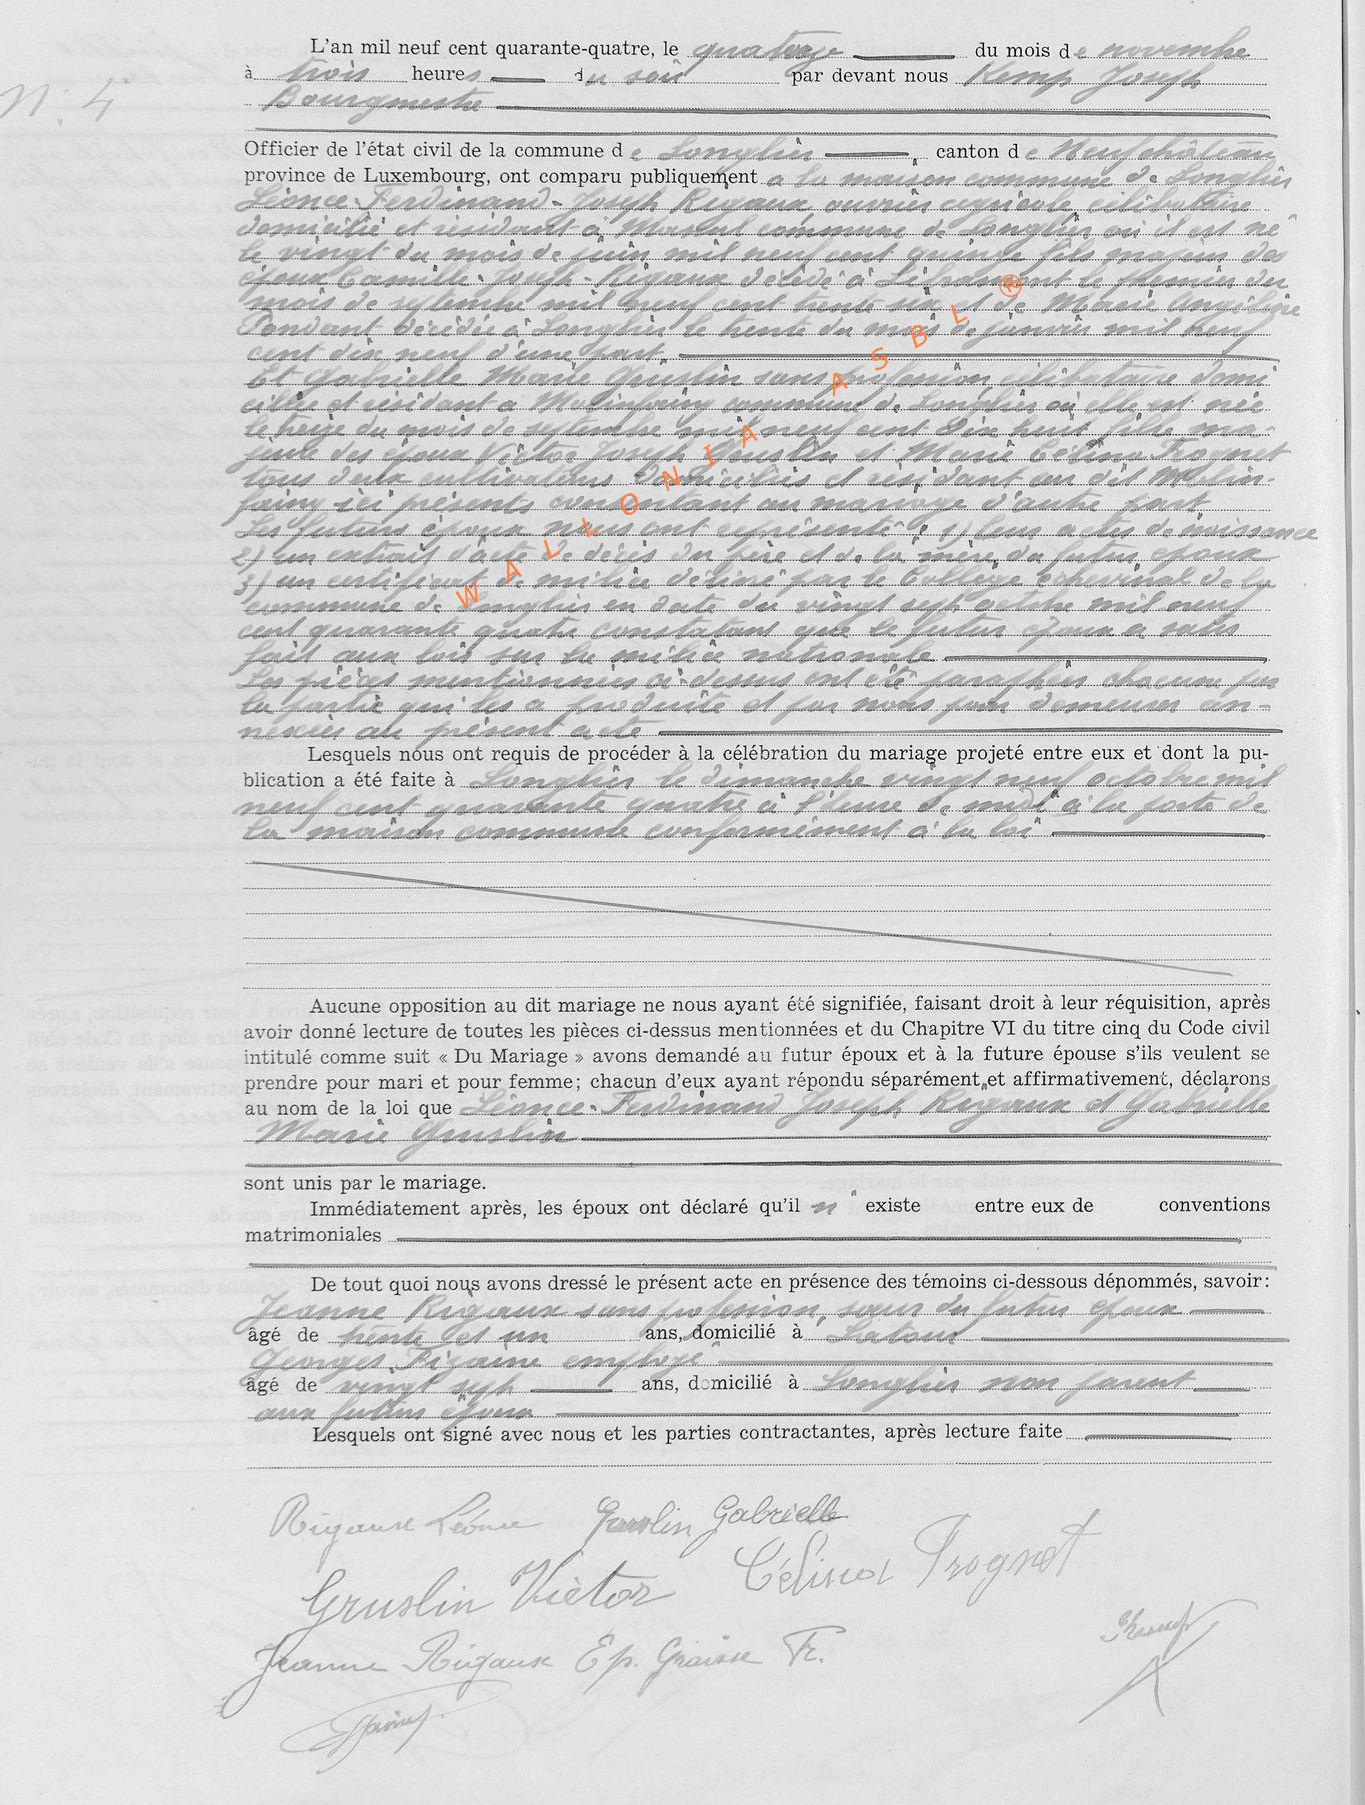 L'an mil neuf cent quarante-quatre, le quatorze du mois de novembre
à trois heures du soir par devant nous Kemp Joseph
N° 4
Bourgmestre
Officier de l'état civil de la commune de Longlier, canton de Neufchâteau
province de Luxembourg, ont comparu publiquement à la maison commune de Longlier
Léonce-Ferdinand-Joseph Rigaux ouvrier agricole célibataire
domicilié et résidant à Massul commune de Longlier où il est né
le vingt du mois de juin mil neuf cent quinze fils majeur des
époux Camille-Joseph-Rigaux décédé à Libramont le premier du
mois de septembre mil neuf cent trente six et de Marie Angéline
Pondant décédée à Longlier le trente du mois de janvier mil neuf
cent dix neuf d'une part.
Et Gabrielle Marie Gruslin sans profession, célibataire domi
ciliée et résidant à Molinfaing commune de Longlier où elle est née
le treize du mois de septembre mil neuf cent dix huit fille ma-
jeure des époux Victor Joseph Gruslin et Marie Célina Frognet
tous deux cultivateurs domiciliés et résidant au dit Molin-
faing ici présents consentant au mariage d'autre part
Les futurs époux nous ont représenté : 1) leurs actes de naissance
2) un extrait d'acte de décès du père et de la mère du futur époux
3) un certificat de milice délivré par le Collège échevinal de la
commune de Longlier en date du vingt sept octobre mil neuf
cent quarante quatre constatant que le futur époux a satis
fait aux lois sur la milice nationale
Les pièces mentionnées ci-dessus ont été paraphées chacune par
la partie qui les a produite et par nous pour demeurer an-
nexées au présent acte
Lesquels nous ont requis de procéder à la célébration du mariage projeté entre eux et dont la pu-
blication a été faite à Longlier le dimanche vingt neuf octobre mil
neuf cent quarante quatre à l'heure de midi à la porte de
la maison commune conformément à la loi
Aucune opposition au dit mariage ne nous ayant été signifiée, faisant droit à leur réquisition, après
avoir donné lecture de toutes les pièces ci-dessus mentionnées et du Chapitre VI du titre cinq du Code civil
intitulé comme suit « Du Mariage » avons demandé au futur époux et à la future épouse s'ils veulent se
prendre pour mari et pour femme; chacun d'eux ayant répondu séparément et affirmativement, déclarons
au nom de la loi que Léonce-Ferdinand Joseph Rigaux et Gabrielle
Marie Gruslin
sont unis par le mariage.
Immédiatement après, les époux ont déclaré qu'il n'existe entre eux de conventions
matrimoniales
De tout quoi nous avons dressé le présent acte en présence des témoins ci-dessous dénommés, savoir:
Jeanne Rigaux sans profession, sœur du futur époux
âgé de trente et un ans, domicilié à Latour
Georges employé
âgé de vingt sept ans, domicilié à Longlier non parent
aux futurs époux
Lesquels ont signé avec nous et les parties contractantes, après lecture faite
Rigaux Léonce Gruslin Gabrielle
Gruslin Victor Célina Frognet
Jeanne Rigaux Ep. Graisse Fr. JKemp
WALLONIA ASBL ®